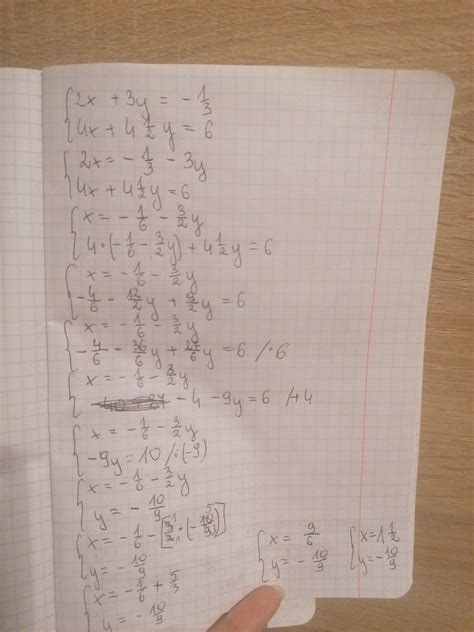 {2x + 3y = -1/3
{4x + 4 1/2 y = 6
{2x = -1/3 - 3y
{4x + 4 1/2 y = 6
{x = -1/6 - 3/2 y
{4·(-1/6 - 3/2 y) + 4 1/2 y = 6
{x = -1/6 - 3/2 y
{-4/6 - 12/2 y + 9/2 y = 6
{x = -1/6 - 3/2 y
{-4/6 - 36/6 y + 27/6 y = 6 /·6
{x = -1/6 - 3/2 y
{- 4 - 9y = 6 /+4
{x = -1/6 - 3/2 y
{-9y = 10 /:(-9)
{x = -1/6 - 3/2 y
{y = -10/9
{x = -1/6 - [3/2 · (-10/9)]
{y = -10/9
{x = -1/6 + 5/3
{y = -10/9
{x = 9/6
{y = -10/9
{x = 1 1/2
{y = -10/9